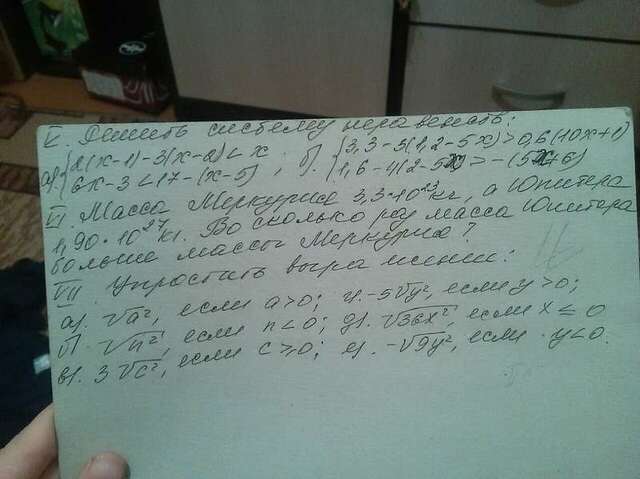 V. Решить систему неравенств:
а) { 2(x-1)-3(x-2)<x ; б) { 3,3-3(1,2-5x)>0,6(10x+1)
6x-3<17-(x-5) 1,6-4(2-5x)>-(5x+6)
VI. Масса Меркурие 3,3·10²³кг, а Юпитера
1,90·10²⁷кг. Во сколько раз масса Юпитера
больше массы Меркурие?
VII. Упростить выражении:
а). √a², если a>0; г. -5√y², если y>0;
б). √n², если n<0; д). √36x², если x≤0
в). 3√c², если c≥0; е). -√9y², если y<0.